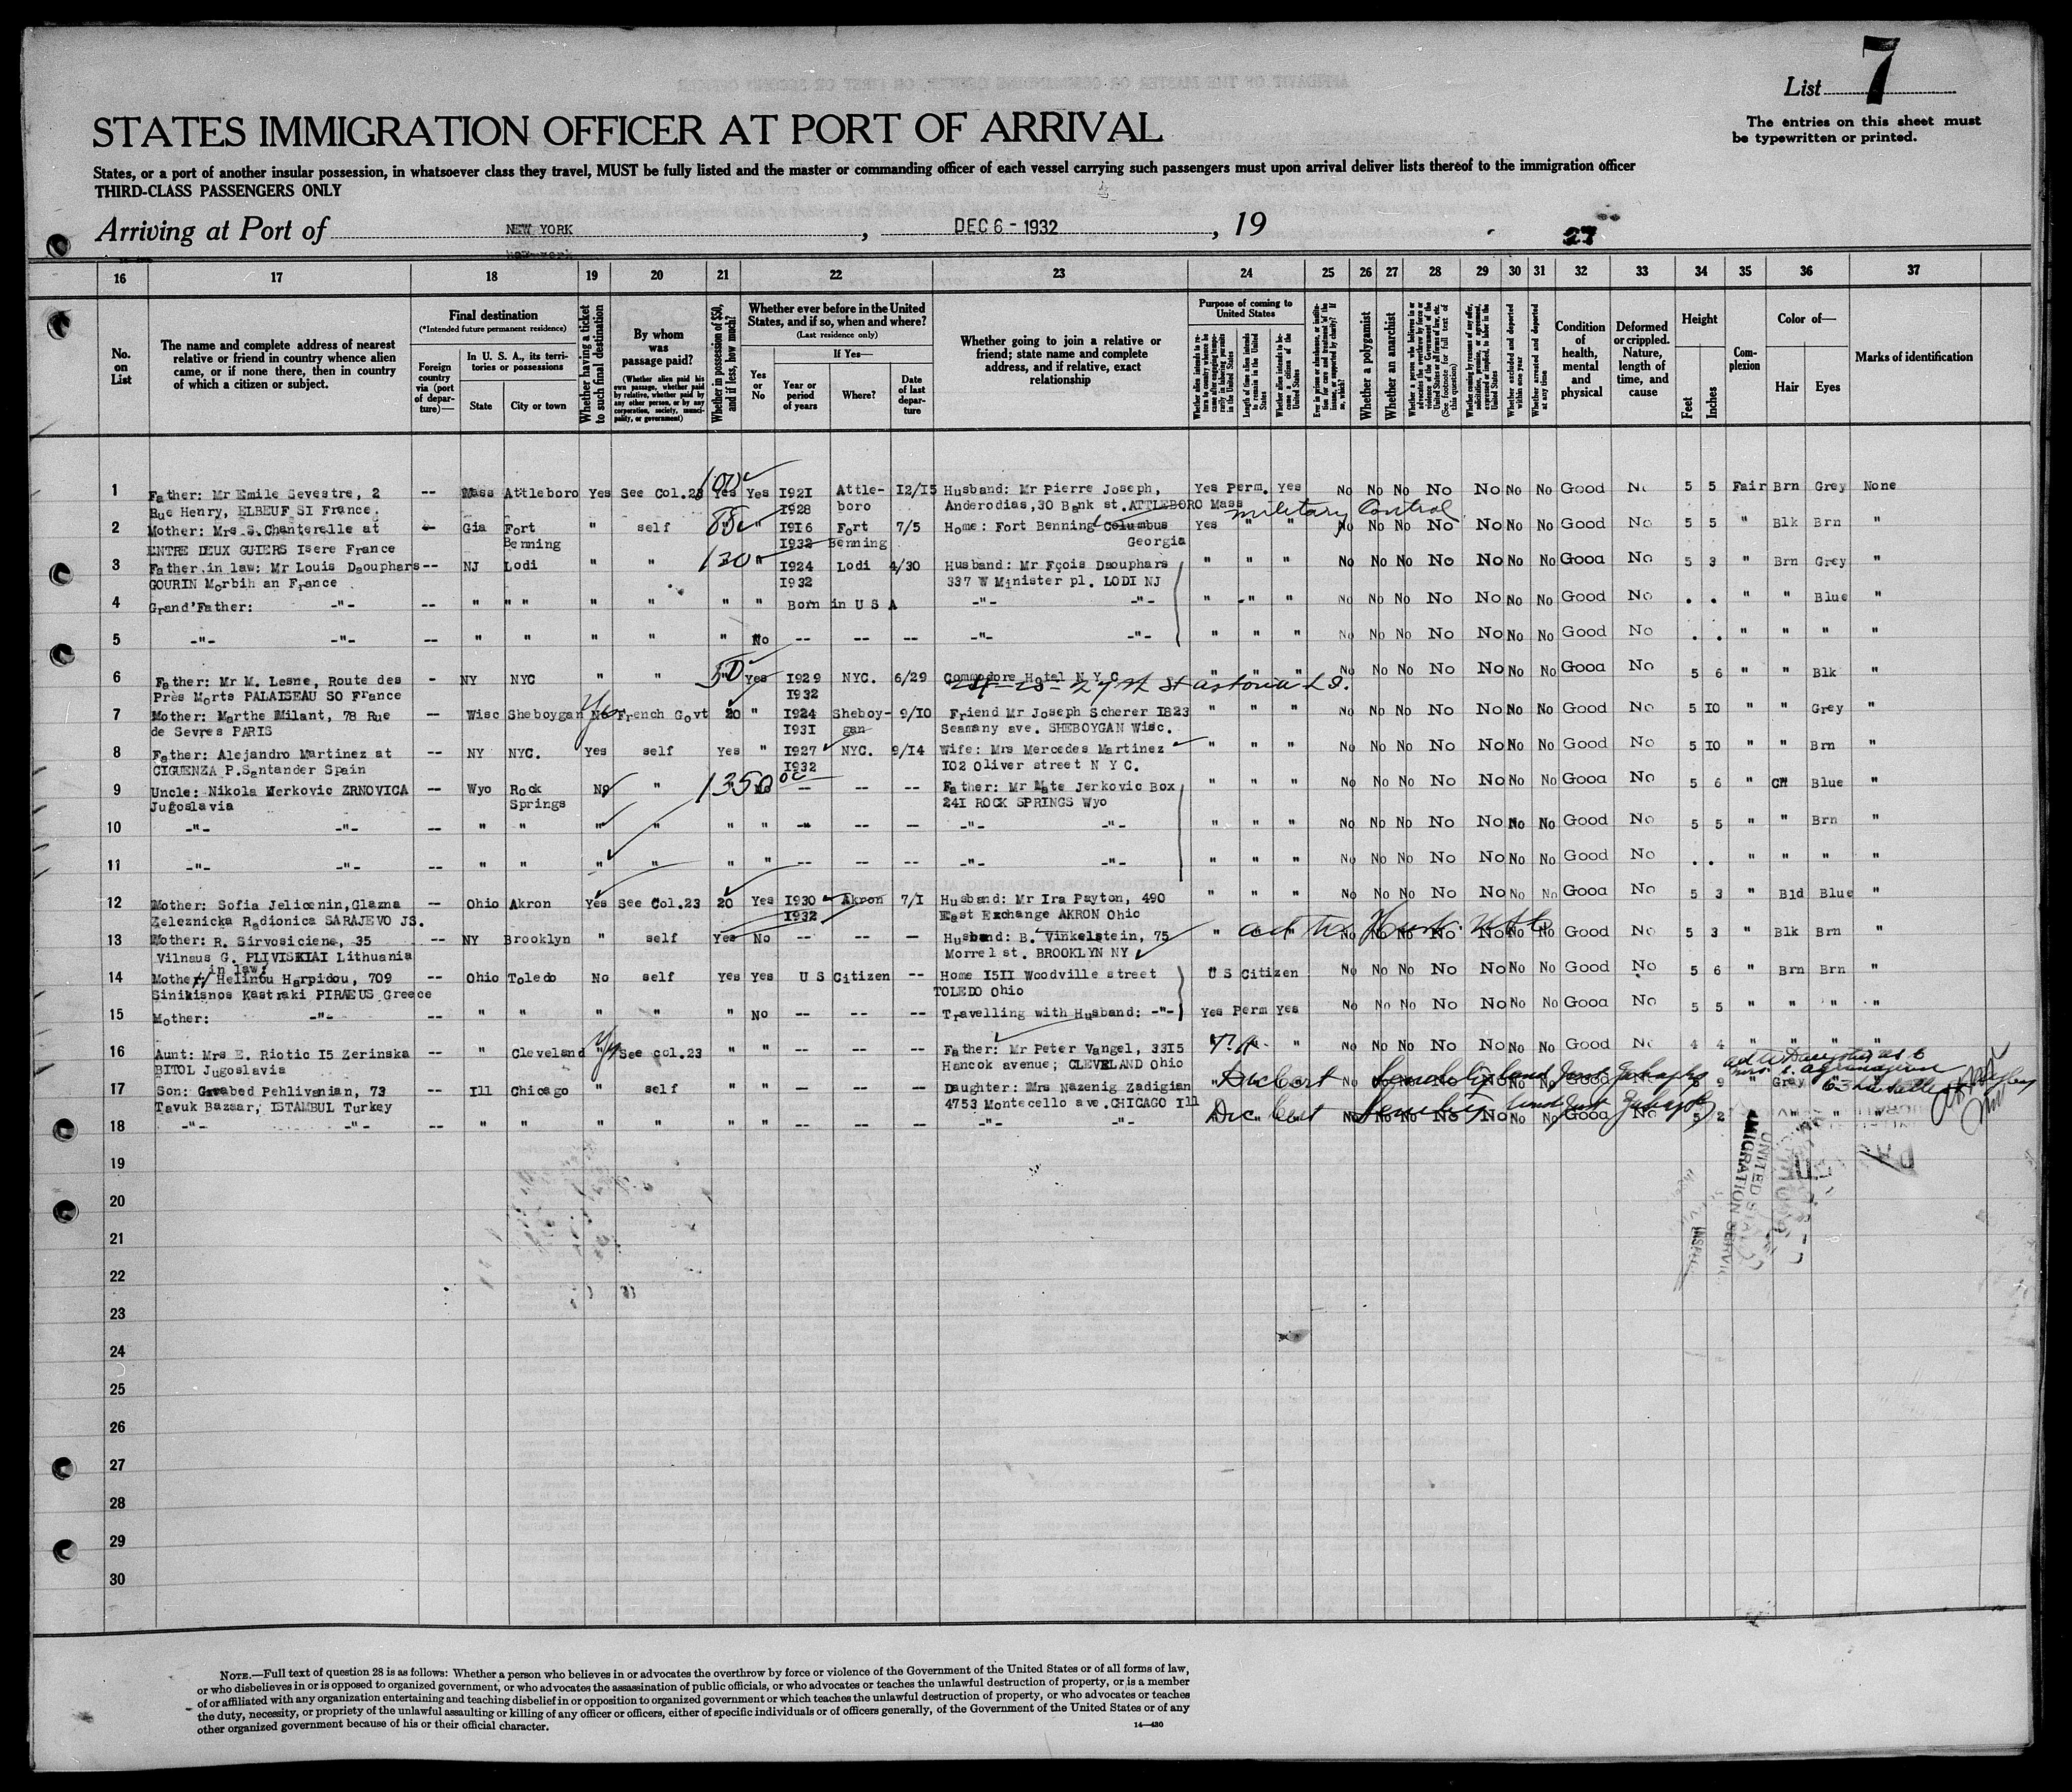 List 7
The entries on this sheet must
be typewritten or printed.
STATES IMMIGRATION OFFICER AT PORT OF ARRIVAL
States, or a port of another insular possession, in whatsoever class they travel, MUST be fully listed and the master or commanding officer of each vessel carrying such passengers must upon arrival deliver lists thereof to the immigration officer
THIRD-CLASS PASSENGERS ONLY
Arriving at Port of NEW YORK, DEC 6 - 1932, 19
27
16 17 18 19 20 21 22 23 24 25 26 27 28 29 30 31 32 33 34 35 36 37
No. on List
The name and complete address of nearest relative or friend in country whence alien came, or if none there, then in country of which a citizen or subject.
Final destination
(*Intended future permanent residence)
Foreign country via (port of departure)—
In U. S. A., its territories or possessions
State
City or town
Whether having a ticket to such final destination
By whom was passage paid?
(Whether alien paid his own passage, whether paid by relative, whether paid by any other person, or by any corporation, society, municipality, or government)
Whether in possession of $50, and if less, how much?
Whether ever before in the United States, and if so, when and where?
(Last residence only)
Yes or No
If Yes—
Year or period of years
Where?
Date of last departure
Whether going to join a relative or friend; state name and complete address, and if relative, exact relationship
Purpose of coming to United States
Length of time alien intends to remain in the United States
Whether alien intends to become a citizen of the United States
Whether a polygamist
Whether an anarchist
Whether excluded and deported within one year
Whether arrested and deported at any time
Condition of health, mental and physical
Deformed or crippled. Nature, length of time, and cause
Height
Feet
Inches
Complexion
Color of—
Hair
Eyes
Marks of identification
1 Father: Mr Emile Sevestre, 2 -- Mass Attleboro Yes See Col.23 Yes 100 Yes 1921 Attle- 12/15 Husband: Mr Pierre Joseph, Yes Perm. Yes No No No No No No No Good No 5 5 Fair Brn Grey None
Rue Henry, ELBEUF SI France. 1928 boro Anderodias,30 Bank st.ATTLEBORO Mass
military Control
2 Mother: Mrs S.Chanterelle at -- Gia Fort " self " " 1916 Fort 7/5 Home: Fort Benning Columbus Yes " " No No No No No No No Good No 5 5 " Blk Brn "
ENTRE DEUX GUIERS Isere France Benning 1932 Benning Georgia
3 Father in law: Mr Louis Daouphars -- NJ Lodi " " 120 " 1924 Lodi 4/30 Husband: Mr Fçois Daouphars " " " No No No No No No No Good No 5 3 " Brn Grey "
GOURIN Morbihan France 1932 337 W Minister pl. LODI NJ
4 Grand'Father: -"- -- " " " " " " " Born in U S A -"- -"- " " " No No No No No No No Good No . . " " Blue "
5 -"- -"- -- " " " " " No -- -- -- -"- -"- " " " No No No No No No No Good No . . " " " "
6 Father: Mr M. Lesne, Route des - NY NYC " " 50 Yes 1929 NYC. 6/29 Commodore Hotel N Y C " " " No No No No No No No Good No 5 6 " " Blk "
Près Morts PALAISEAU SO France 1932 27th St Astoria L.I.
7 Mother: Marthe Milant, 78 Rue -- Wisc Sheboygan No Yes French Govt 20 " 1924 Sheboy- 9/10 Friend Mr Joseph Scherer 1823 " " " No No No No No No No Good No 5 10 " " Grey "
de Sevres PARIS 1931 gan Seamany ave. SHEBOYGAN Wisc.
8 Father: Alejandro Martinez at -- NY NYC. Yes self Yes " 1927 NYC. 9/14 Wife: Mrs Mercedes Martinez " " " No No No No No No No Good No 5 10 " " Brn "
CIGUENZA P.Santander Spain 1932 102 Oliver street N Y C.
9 Uncle: Nikola Merkovic ZRNOVICA -- Wyo Rock No " 1350 No -- -- -- Father: Mr Mate Jerkovic Box " " " No No No No No No No Good No 5 6 " Blue "
Jugoslavia Springs 241 ROCK SPRINGS Wyo
10 -"- -"- -- " " " " " " -- -- -- -"- -"- " " " No No No No No No No Good No 5 5 " " Brn "
11 -"- -"- -- " " " " " " -- -- -- -"- -"- " " " No No No No No No No Good No . . " " " "
12 Mother: Sofia Jelicenin,Glazna -- Ohio Akron Yes See Col.23 20 Yes 1930 Akron 7/1 Husband: Mr Ira Payton, 490 " " " No No No No No No No Good No 5 3 " Bld Blue "
Zeleznicka Radionica SARAJEVO JS. 1932 East Exchange AKRON Ohio
13 Mother: R. Sirvosiciene, 35 -- NY Brooklyn " self Yes No -- -- -- Husband: B. Vinkelstein, 75 " " No No No No No No No Good No 5 3 " Blk Brn "
Vilnaus G. PLIVISKIAI Lithuania Morrel st. BROOKLYN NY
in law:
14 Mother Helinou Harpidou, 709 -- Ohio Toledo No self Yes Yes U S Citizen -- Home 1511 Woodville street U S Citizen No No No No No No No Good No 5 6 " Brn Brn "
Sinikisnos Kastraki PIRAEUS Greece TOLEDO Ohio
15 Mother: -"- -- " " " " " No -- -- -- Travelling with Husband: -"- Yes Perm Yes No No No No No No No Good No 5 5 " " " "
16 Aunt: Mrs E. Riotic 15 Zerinska -- " Cleveland " See col.23 " " -- -- -- Father: Mr Peter Vangel, 3315 " " No No No No No No No Good No 4 4 " " " "
BITOL Jugoslavia Hancok avenue; CLEVELAND Ohio
17 Son: Garabed Pehlivanian, 73 -- Ill Chicago " self " " -- -- -- Daughter: Mrs Nazenig Zadigian No No No No No Good No 5 9 " Gray
Tavuk Bazaar, ISTAMBUL Turkey 4753 Montecello ave.CHICAGO Ill
18 -"- -"- -- " " " " " " -- -- -- -"- -"- No No No No No Good No 5 2 " " " "
19
20
21
22
23
24
25
26
27
28
29
30
UNITED STATES
IMMIGRATION SERVICE
NOTE.—Full text of question 28 is as follows: Whether a person who believes in or advocates the overthrow by force or violence of the Government of the United States or of all forms of law,
or who disbelieves in or is opposed to organized government, or who advocates the assassination of public officials, or who advocates or teaches the unlawful destruction of property, or is a member
of or affiliated with any organization entertaining and teaching disbelief in or opposition to organized government or which teaches the unlawful destruction of property, or who advocates or teaches
the duty, necessity, or propriety of the unlawful assaulting or killing of any officer or officers, either of specific individuals or of officers generally, of the Government of the United States or of any
other organized government because of his or their official character.
14—430